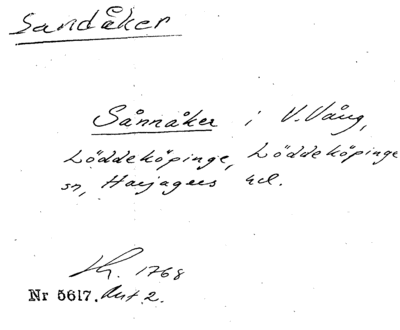 Sandåker
Sånnåker i V. Vång,
Löddeköpinge, Löddeköpinge
sn, Harjagers hd.
1768
Nr 5617. Akt 2.